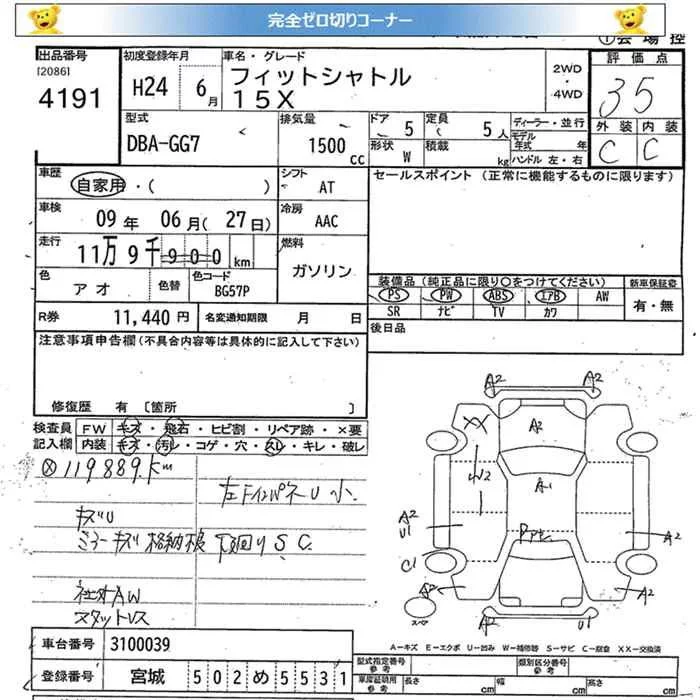 完全ゼロ切りコーナー
出品番号
[2086]
4191
初度登録年月
H24 6月
車名・グレード
フィットシャトル
15X
2WD
・
4WD
評価点
35
外装 内装
C C
型式
DBA-GG7
排気量
1500cc
ドア 5
形状 W
定員 5人
積載 kg
ディーラー・並行
モデル年式 年
ハンドル 左・右
車歴
自家用・( )
シフト
AT
セールスポイント (正常に機能するものに限ります)
車検
09年 06月(27日)
冷房
AAC
走行
11万9千900km
燃料
ガソリン
色
アオ
色替
色コード
BG57P
装備品(純正品に限り○をつけてください)
新車保証書
PS PW ABS エアB AW
SR ナビ TV カワ
有・無
R券 11,440円
名変通知期限 月 日
後日品
注意事項申告欄(不具合内容等は具体的に記入して下さい)
修復歴 有 〔箇所 〕
検査員
記入欄
FW キズ・飛石・ヒビ割・リペア跡・×要
内装 キズ・汚レ・コゲ・穴・スレ・キレ・破レ
119889.Km
キズU
ミラーキズ 格納根 下廻りS C.
社外AW
スタットレス
A2 A2
XX A2
W2 A1
A2
U1
A2
C1
A2 A2
スペア A2 U1
A-キズ E-エクボ U-凹み W-補修跡 S-サビ C-腐食 XX-交換済
車台番号 3100039
登録番号 宮城 502め5531
型式指定番号
参考
類別区分番号
参考
車庫証明用
参考
長さ cm 幅 cm 高さ cm